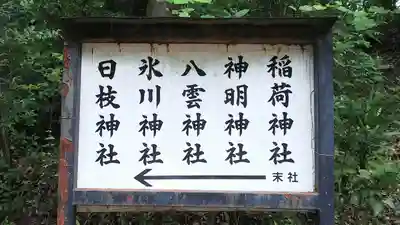 稲荷神社
神明神社
八雲神社
氷川神社
日枝神社
末社